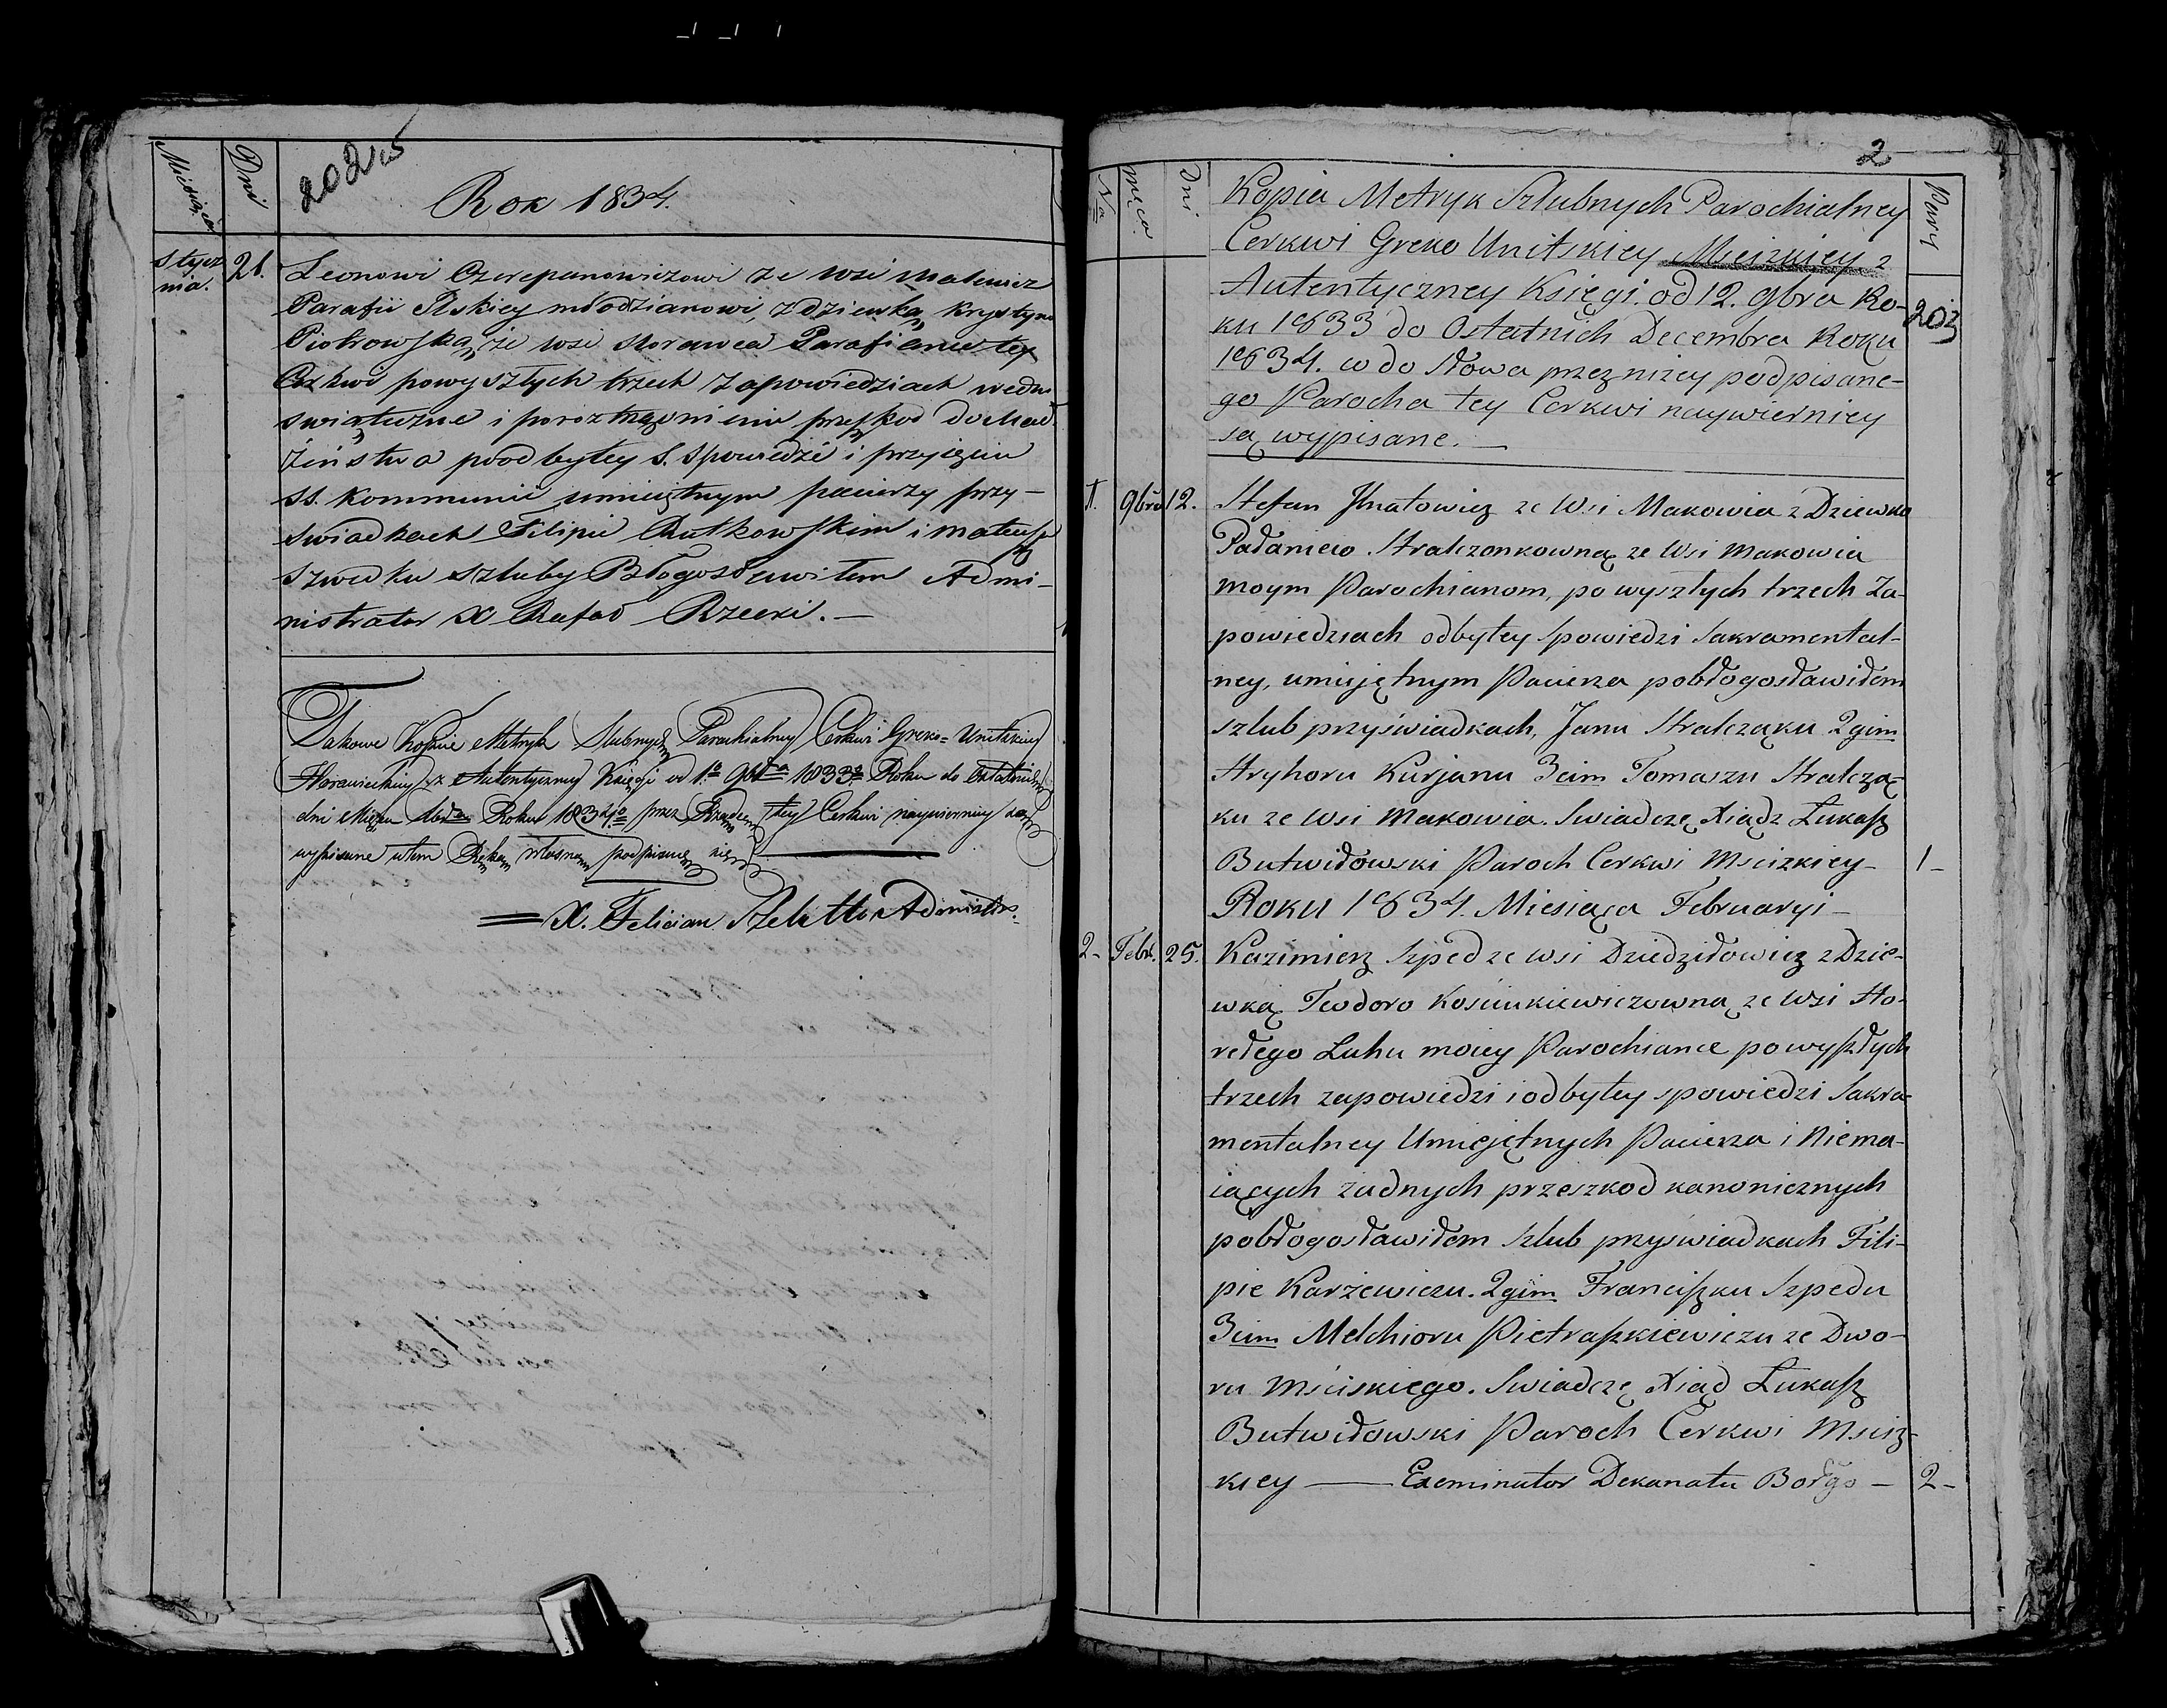 Miesiąca
Dni
202
Rok 1834.
Stycz
nia.
21.
Leonowi Czerepanowiczowi ze wsi Malewicz
Parafii Pliskiey młodzianowi, z dziewką Krystyną
Piotrowską, ze wsi Norawca Parafiance tey
Cerkwi po wyszłych trzech zapowiedziach wedni
swiąteczne i po roztrząsnieniu przeszkod do Mał
żeństwa po odbytey S. Spowiedzi i przyięciu
SS. Kommunii umieiętnym pacierzy przy-
swiadkach Filipie Rutkowskim i Mateusz
Szwedku szluby Błogosławiłem Admi-
nistrator X Rafał Rzecki.—
Takowe Kopie Metryk Slubnych Parachialney Cerkwi Greko=Unitskiey
z Autentyczney Księgi od 1o 9bra 1833o Roku do Ostatnich
dni Mięca Roku 1834o przez Rządcę tey Cerkwi naywierniey są
wypisane wtem Ręką własną podpisuię się
X. Felician Administr.
2
Na
Męca
Dni
Pary
203
Kopia Metryk Szlubnych Parochialney
Cerkwi Greko Unitskiey Mscizkiey z
Autentyczney Księgi od 12. 9bra Ro-
ku 1833 do Ostatnich Decembra Roku
1834. w do Słowa przez niżey podpisane-
go Parocha tey Cerkwi naywierniey
są wypisane.—
1. 9bra 12. Stefan Jhnatowicz ze Wsi Makowia z Dziewką
Stralczonkowną ze Wsi Makowia
moym Parochianom, po wyszłych trzech Za-
powiedziach odbytey Spowiedzi Sakramental-
ney, umiejętnym Pacierza pobłogosławiłem
szlub przyświadkach, Janu Stralczaku 2gim
Hryhoru Kurjanu 3cim Tomaszu Stralcza-
ku ze Wsi Makowia. Swiadczę Xiądz Łukasz
Butwiłowski Paroch Cerkwi Mscizkiey- 1-
Roku 1834. Miesiąca Februaryi-
2- Febr. 25. Kazimierz Szped ze wsi Dziedziłowicz z Dzie-
wką Teodoro Kosciukiewiczowną ze Wsi Ho-
rełego Luhu moiey Parochiance po wyszłych
trzech zapowiedzi i odbytey spowiedzi Sakra-
mentalney Umiejętnych Pacierza i Niema-
iących żadnych przeszkod kanonicznych
pobłogosławiłem Szlub przyswiadkach Fili-
pie Karżewiczu. 2gim Franciszku Szpedu
3cim Melchioru Pietraszkiewiczu ze Dwo-
ru Msciskiego. Swiadczę Xiąd Łukasz
Butwiłowski Paroch Cerkwi Mscisz-
kiey — Exeminator Dekanatu Borgo — 2-